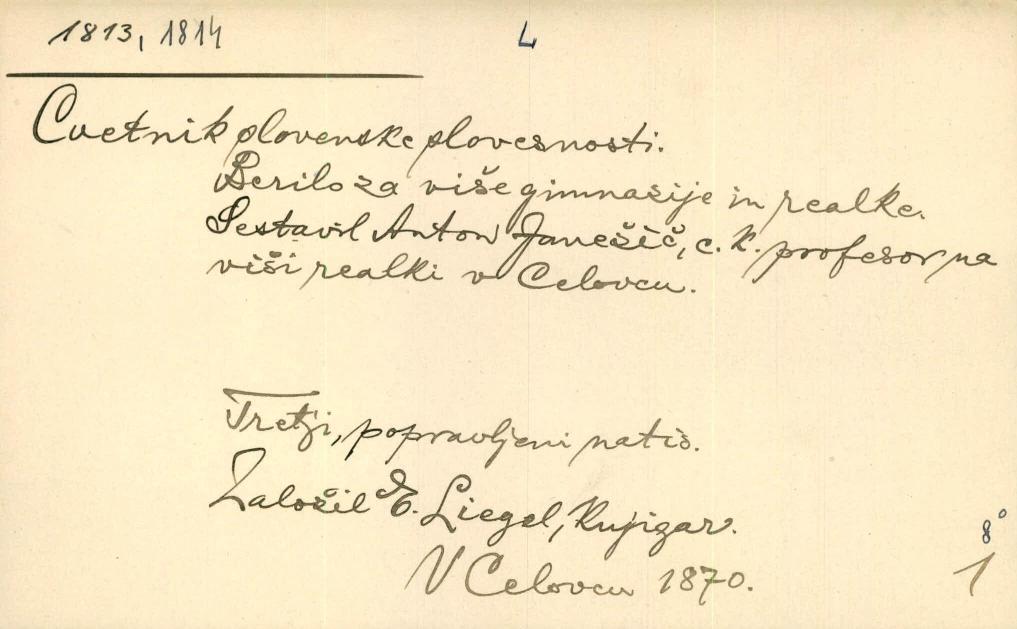 1813, 1814
L
Cvetnik slovenske slovesnosti.
Berilo za više gimnazije in realke.
Sestavil Anton Janežič, c. k. profesor na
viši realki v Celovcu.
Tretji, popravljeni natis.
Založil E. Liegel, Kujigar.
V Celovcu 1870.
8°
1